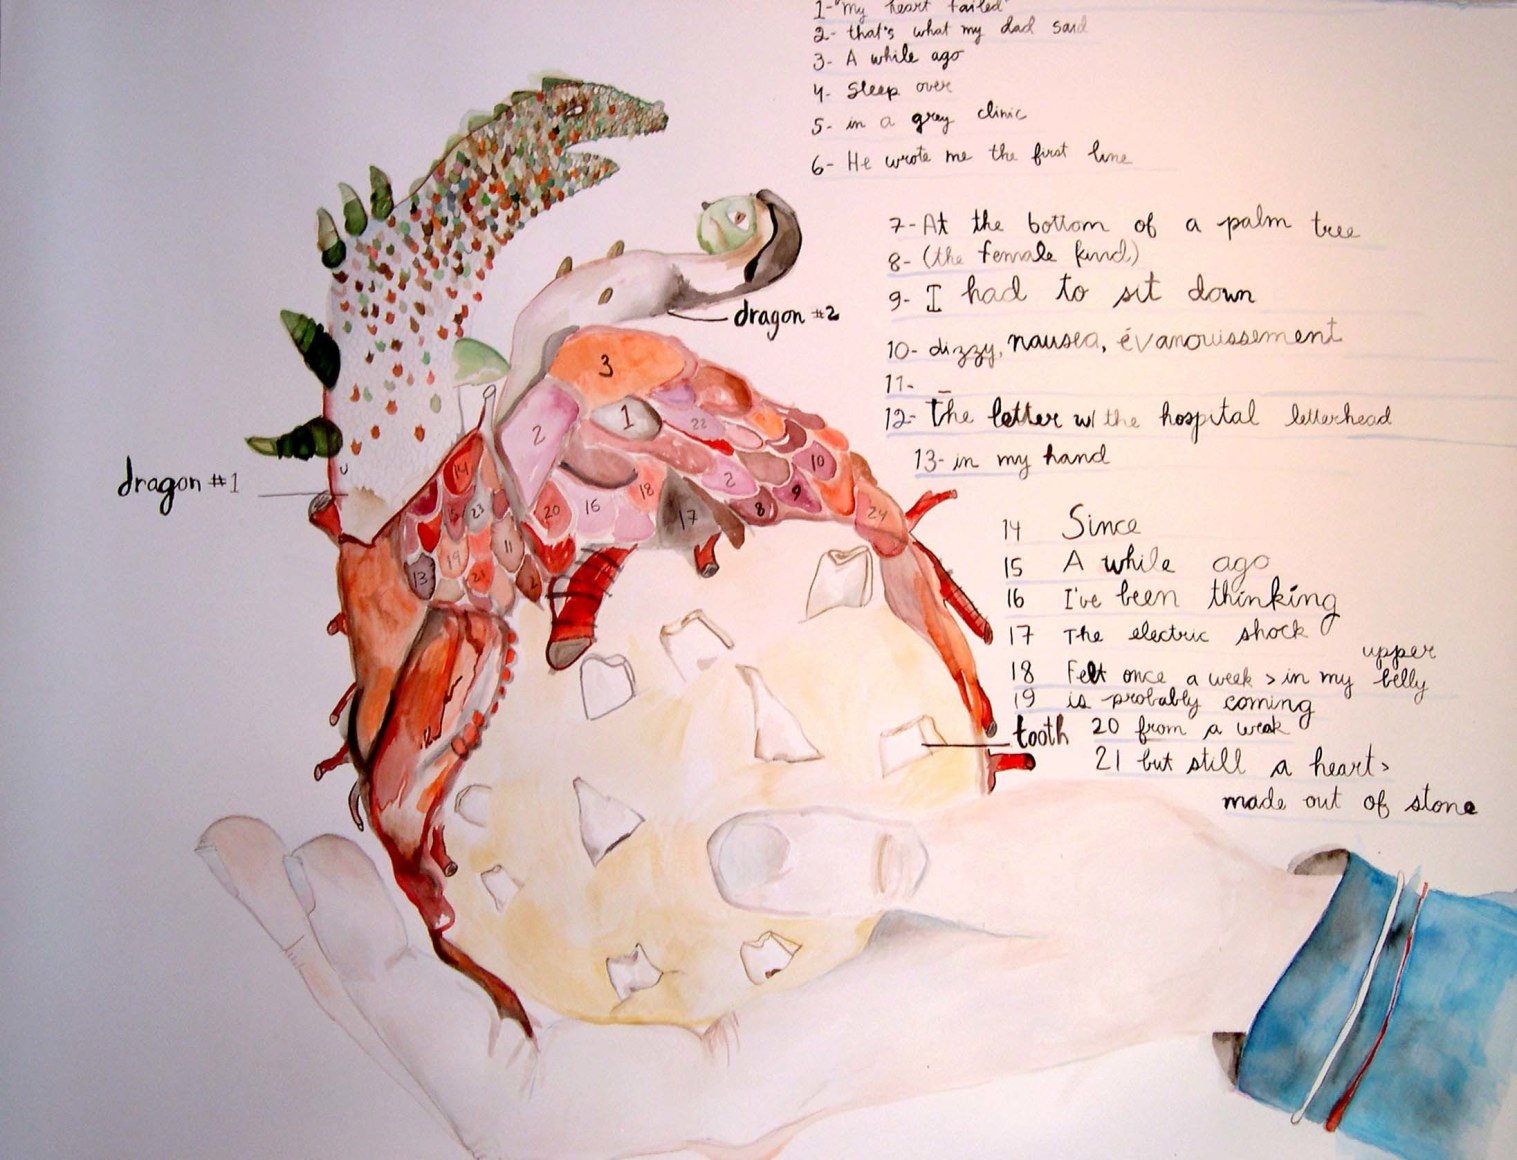 1- "my heart failed"
2- that's what my dad said
3- A while ago
4- Sleep over
5- in a grey clinic
6- He wrote me the first line
7- At the bottom of a palm tree
8- (the female kind)
9- I had to sit down
10- dizzy, nausea, évanouissement
11- _
12- The letter w/ the hospital letterhead
13- in my hand
14 Since
15 A while ago
16 I've been thinking
17 The electric shock
18 Felt once a week > in my upper belly
19 is probably coming
20 from a weak
21 but still a heart >
made out of stone
dragon #2
dragon #1
tooth
3
1
2
22
10
2
18
9
8
17
16
20
24
14
15
23
19
11
13
21
2